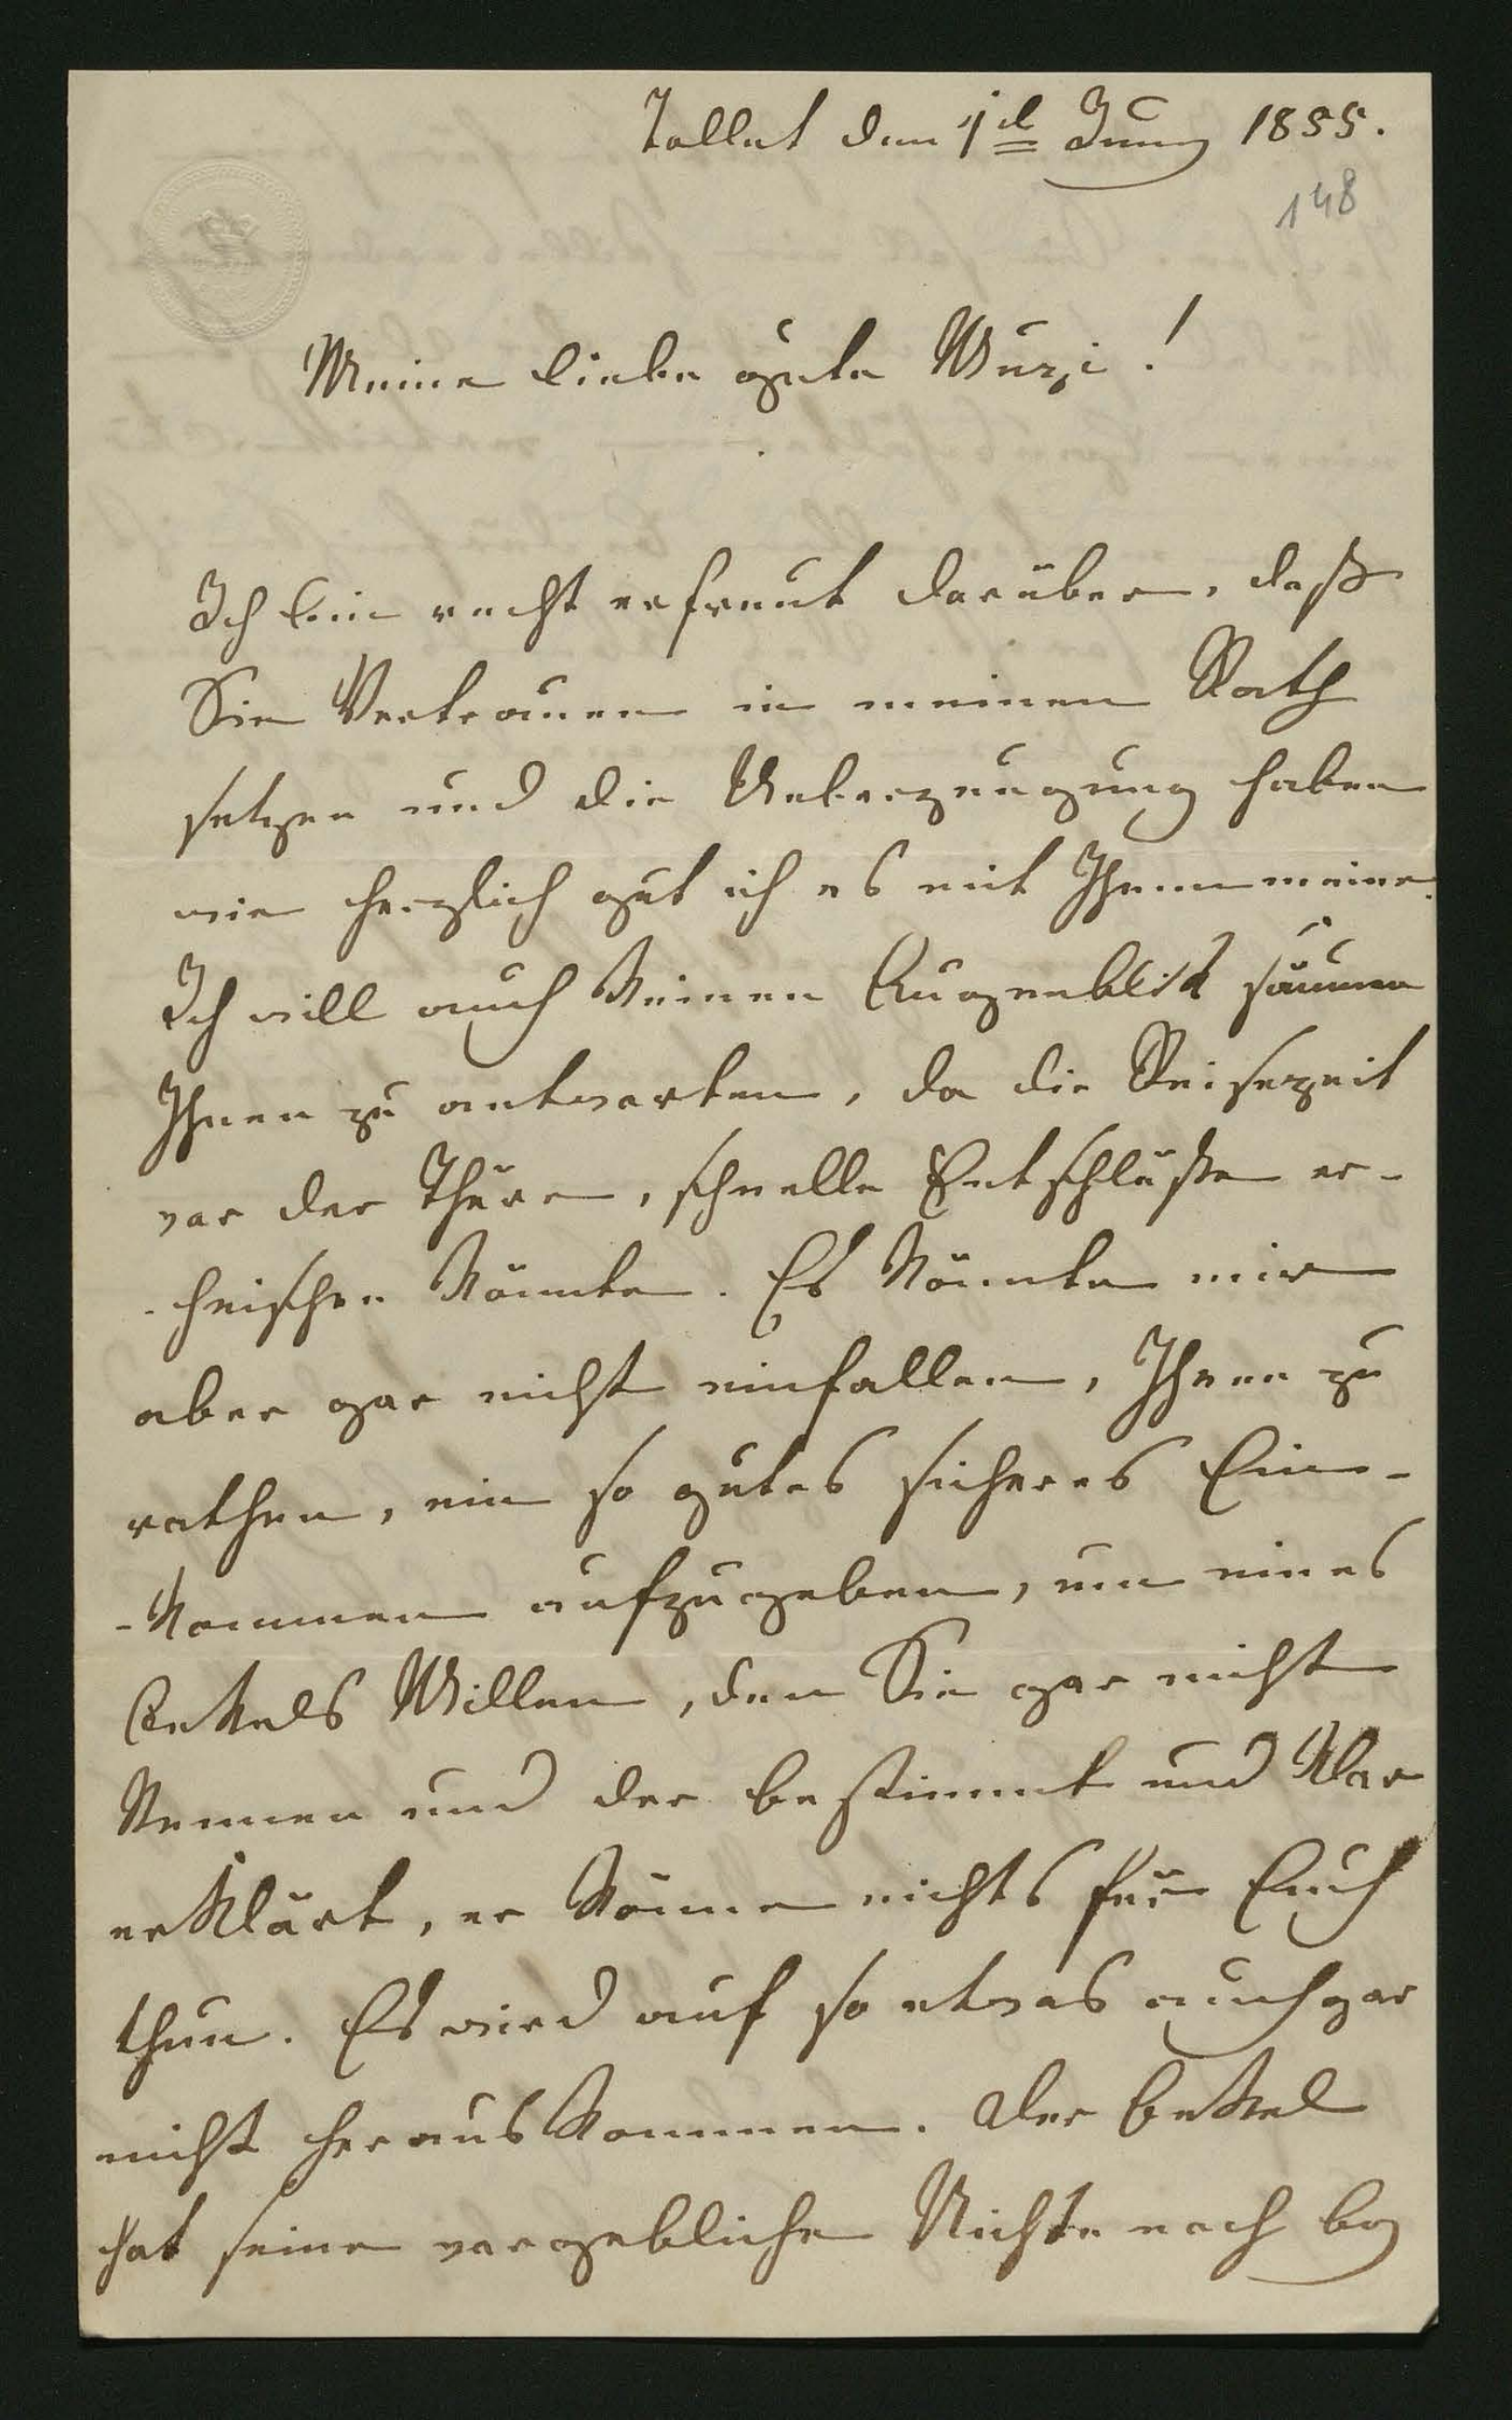 Tallet den 1t Juny 1855.
148
Meine liebe gute Wurzi!
Ich bin recht erfreut darüber, daß
Sie Vertrauen in meinen Rath
setzen und die Ueberzeugung haben
wie herzlich gut ich es mit Ihnen meine.
Ich will auch keinen Augenblick säumen
Ihnen zu antworten, da die Reisezeit
vor der Thüre, schnelle Entschlüße er-
-heischen könnte. Es könnte mir
aber gar nicht einfallen, Ihnen zu
rathen, ein so gutes sicheres Ein-
-kommen aufzugeben, um eines
Onkels Willen, den Sie gar nicht
kennen und der bestimmt und klar
erklärt, er könne nichts für Euch
thun. Es wird auf so etwas auch gar
nicht herauskommen. Der Onkel
hat seine vorgebliche Nichte noch bey